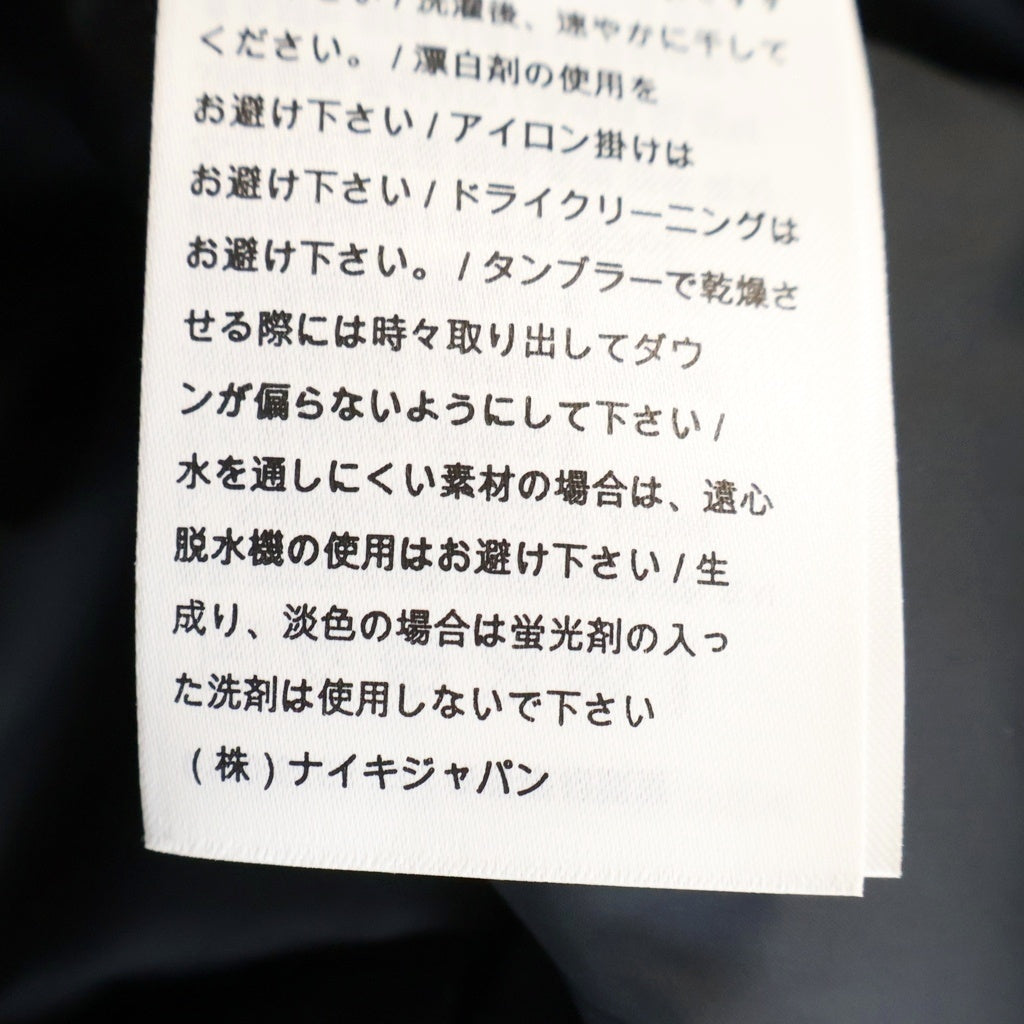 / 洗濯後、速やかに干して
ください。 / 漂白剤の使用を
お避け下さい / アイロン掛けは
お避け下さい / ドライクリーニングは
お避け下さい。 / タンブラーで乾燥さ
せる際には時々取り出してダウ
ンが偏らないようにして下さい /
水を通しにくい素材の場合は、遠心
脱水機の使用はお避け下さい / 生
成り、淡色の場合は蛍光剤の入っ
た洗剤は使用しないで下さい
(株)ナイキジャパン